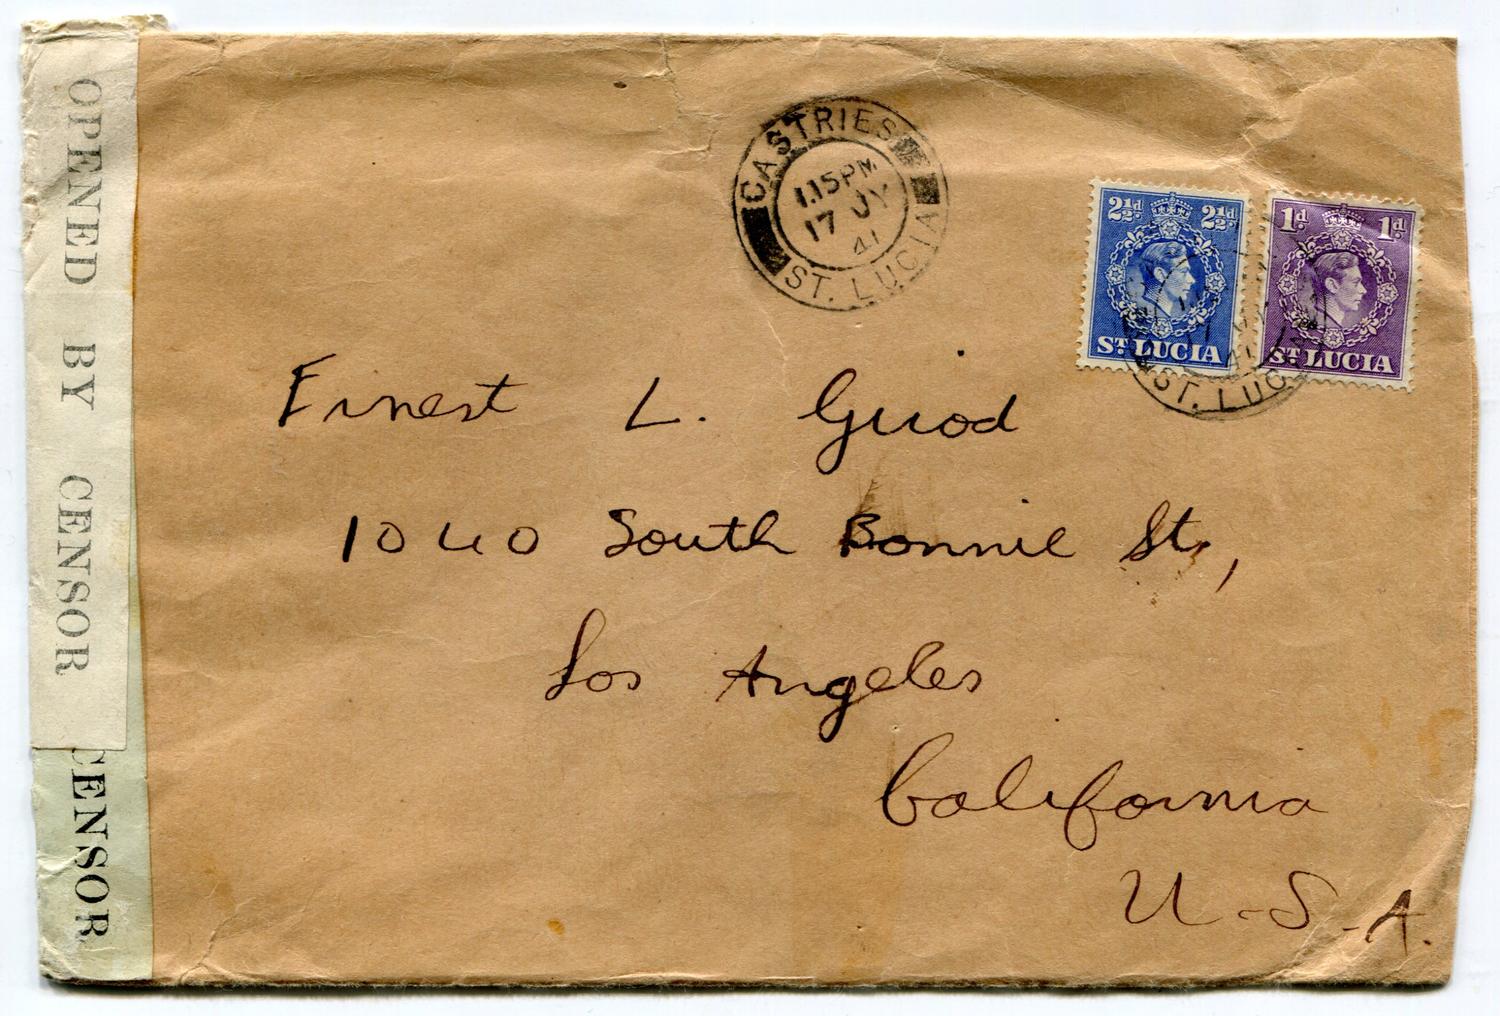 OPENED BY CENSOR
CENSOR
CASTRIES
1.15PM
17 JY
41
ST. LUCIA
2½d. 2½d.
ST LUCIA
1d. 1d.
ST LUCIA
ST. LUC
41
Ernest L. Guod
1040 South Bonnie St.,
Los Angeles
California
U.S.A.